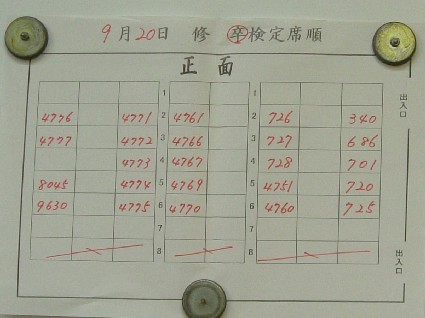 9月20日 修 卒検定席順
正面
1 1
4776 4771 2 4761 2 726 340
4777 4772 3 4766 3 727 686
4773 4 4767 4 728 701
8045 4774 5 4769 5 4751 720
9630 4775 6 4770 6 4760 725
7 7
8 8
出入口
出入口